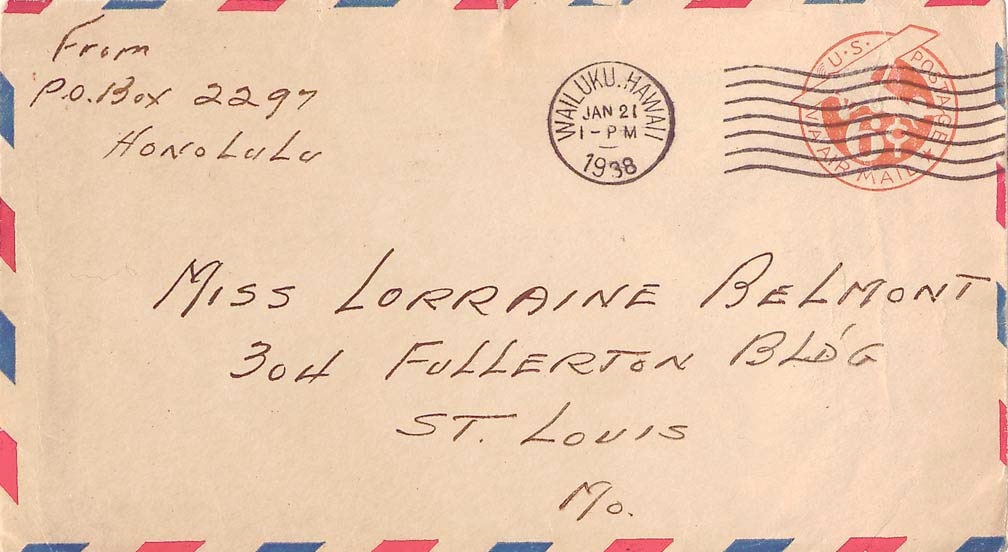 From
P.O. Box 2297
HONOLULU
WAILUKU. HAWAII
JAN 21
1-PM
1938
U.S. POSTAGE
VIA AIR MAIL
MISS LORRAINE BELMONT
304 FULLERTON BLD'G
ST. LOUIS
Mo.